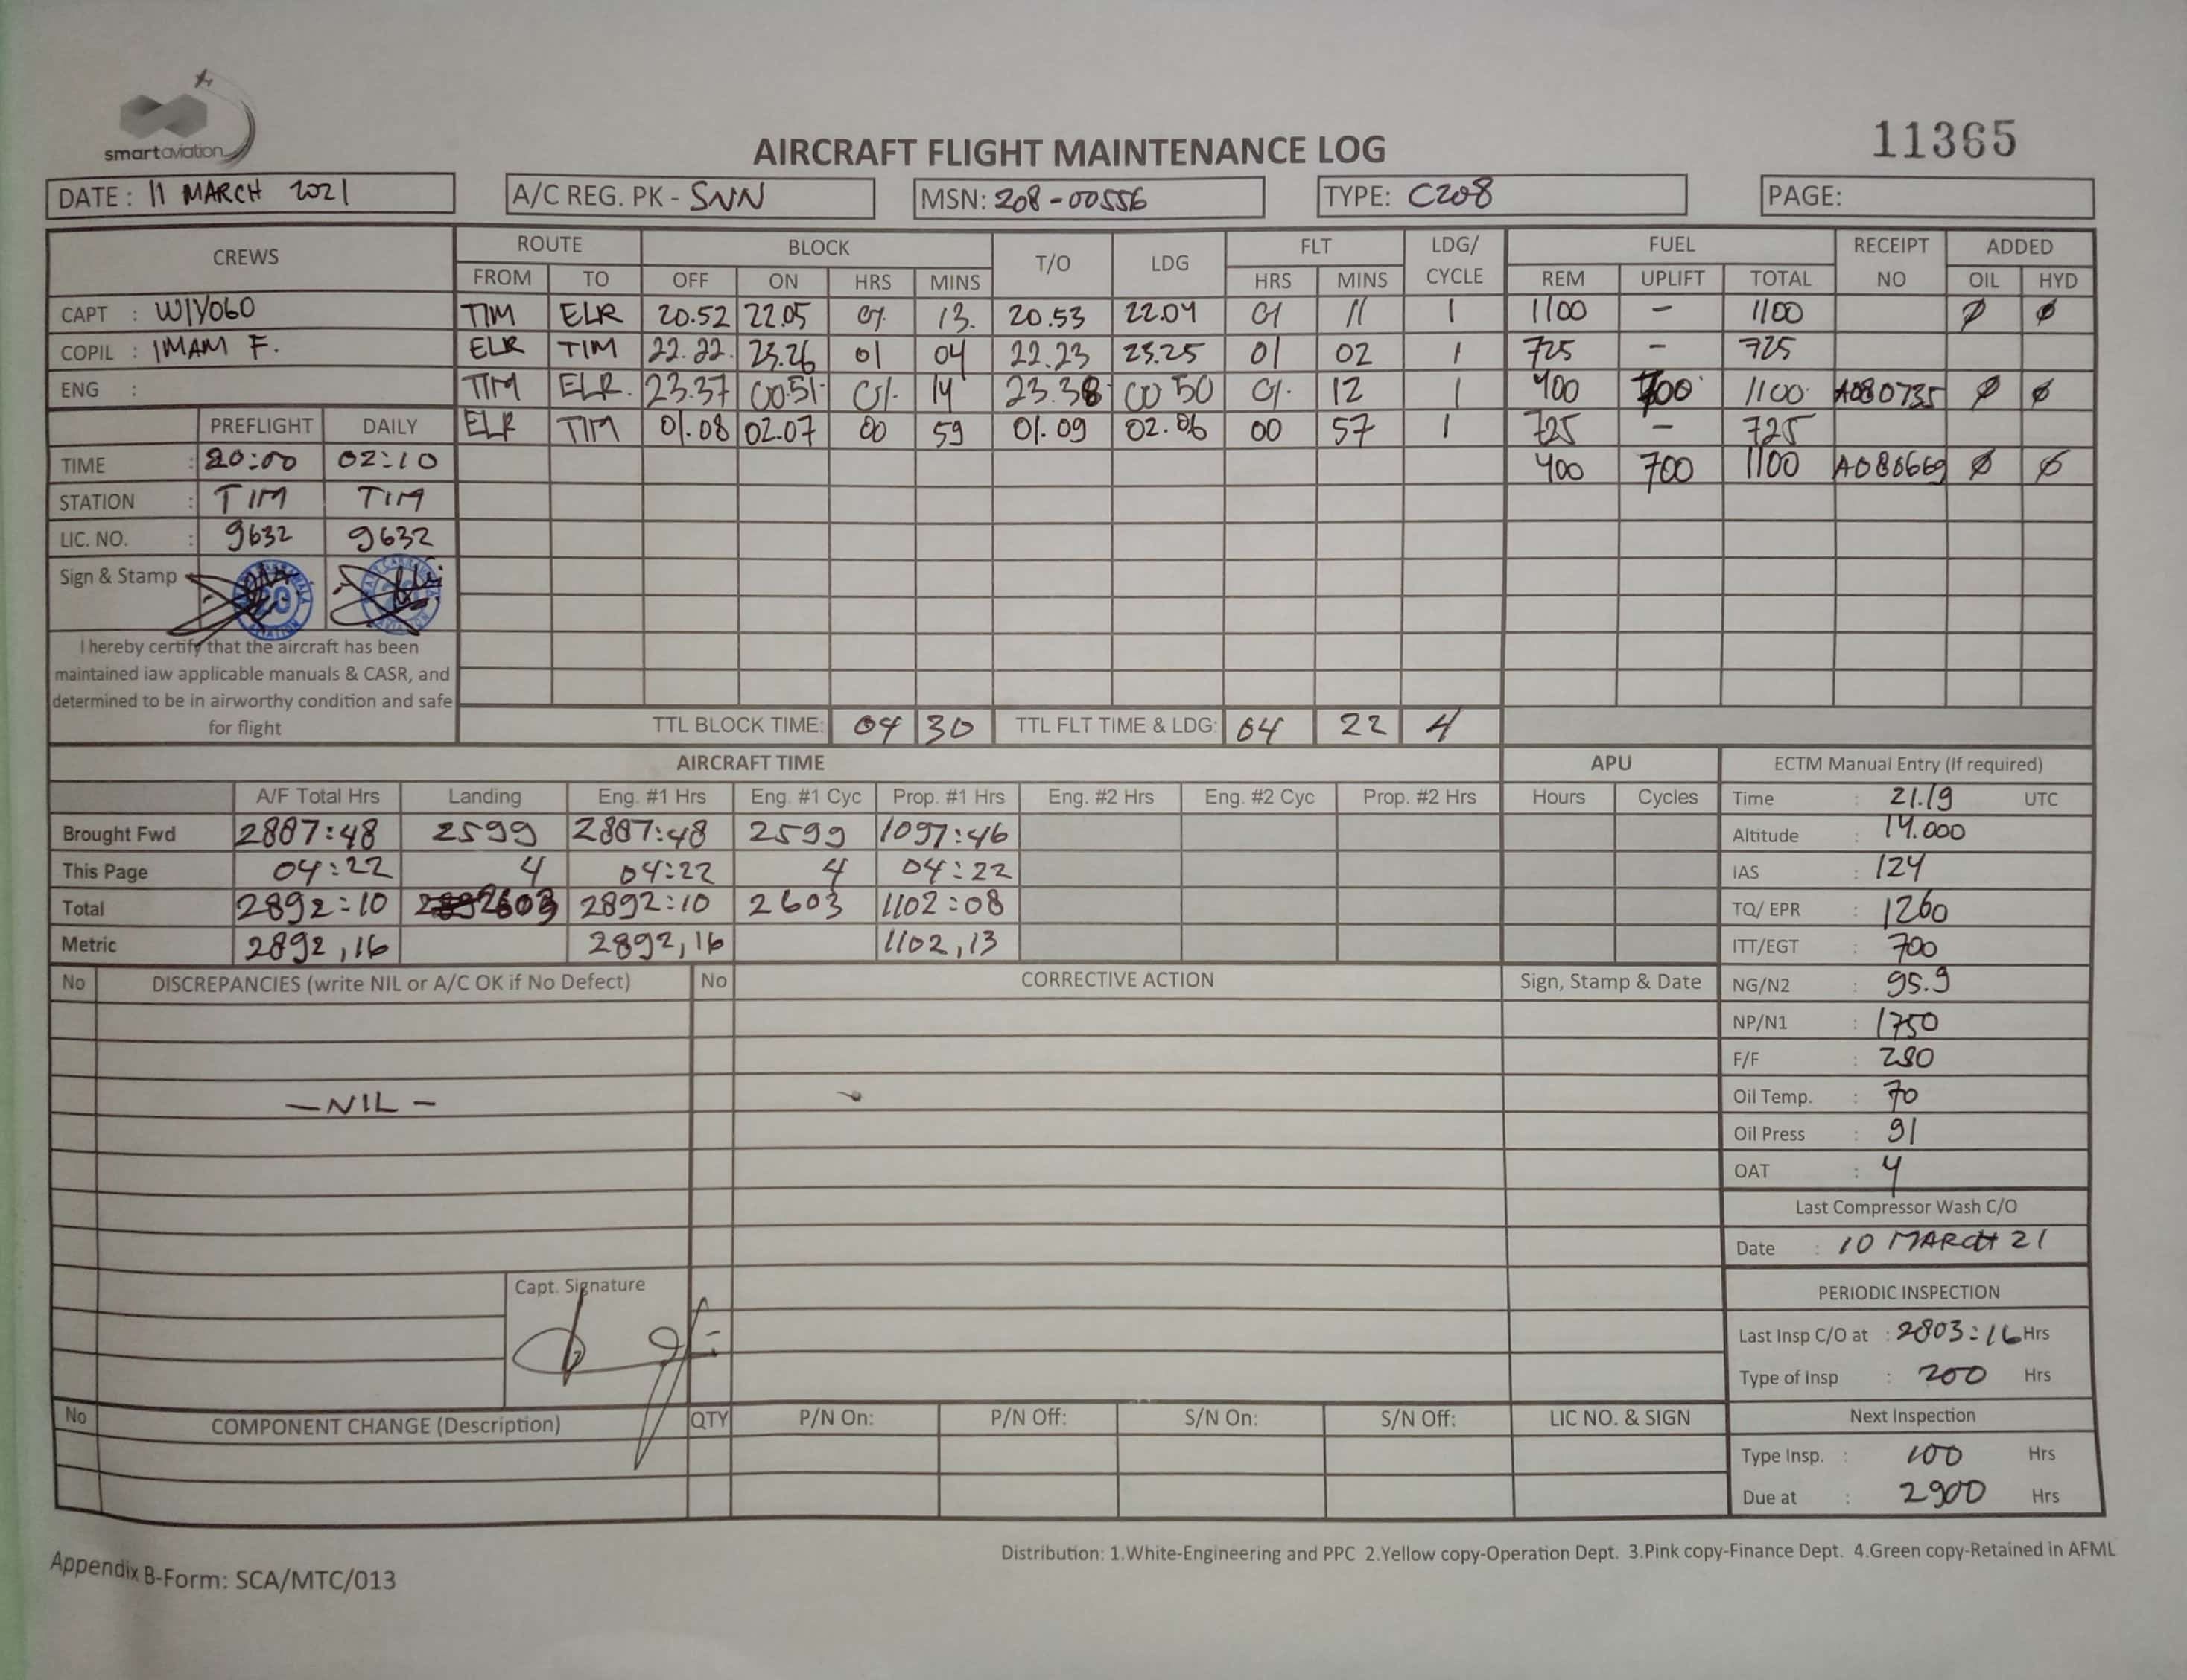 smartaviation
AIRCRAFT FLIGHT MAINTENANCE LOG
11365
DATE : 11 MARCH 2021 A/C REG. PK - SNN MSN: 208-00556 TYPE: C208 PAGE:
CREWS ROUTE BLOCK T/O LDG FLT LDG/ CYCLE FUEL RECEIPT NO ADDED
FROM TO OFF ON HRS MINS HRS MINS REM UPLIFT TOTAL OIL HYD
CAPT : WIYOGO TIM ELR 20.52 22.05 01 13. 20.53 22.04 01 11 1 1100 - 1100 ∅ ∅
COPIL : IMAM F. ELR TIM 22.22. 23.26 01 04 22.23 23.25 01 02 1 725 - 725
ENG : TIM ELR. 23.37 00.51 01. 14 23.38 00 50 01. 12 1 400 700 1100 A080735 ∅ ∅
PREFLIGHT DAILY ELR TIM 01.08 02.07 00 59 01.09 02.06 00 57 1 725 - 725
TIME : 20:00 02:10 400 700 1100 A080669 ∅ ∅
STATION : TIM TIM
LIC. NO. : 9632 9632
Sign & Stamp
I hereby certify that the aircraft has been
maintained iaw applicable manuals & CASR, and
determined to be in airworthy condition and safe
for flight
TTL BLOCK TIME: 04 30 TTL FLT TIME & LDG: 04 22 4
AIRCRAFT TIME APU ECTM Manual Entry (If required)
A/F Total Hrs Landing Eng. #1 Hrs Eng. #1 Cyc Prop. #1 Hrs Eng. #2 Hrs Eng. #2 Cyc Prop. #2 Hrs Hours Cycles Time : 21.19 UTC
Brought Fwd 2887:48 2599 2887:48 2599 1097:46 Altitude : 14.000
This Page 04:22 4 04:22 4 04:22 IAS : 124
Total 2892:10 2603 2892:10 2603 1102:08 TQ/ EPR : 1260
Metric 2892,16 2892,16 1102,13 ITT/EGT : 700
No DISCREPANCIES (write NIL or A/C OK if No Defect) No CORRECTIVE ACTION Sign, Stamp & Date NG/N2 : 95.9
NP/N1 : 1750
F/F : 280
- NIL - Oil Temp. : 70
Oil Press : 91
OAT : 4
Last Compressor Wash C/O
Date : 10 MARCH 21
Capt. Signature
PERIODIC INSPECTION
Last Insp C/O at : 2803:16 Hrs
Type of Insp : 200 Hrs
No COMPONENT CHANGE (Description) QTY P/N On: P/N Off: S/N On: S/N Off: LIC NO. & SIGN Next Inspection
Type Insp. : 100 Hrs
Due at : 2900 Hrs
Distribution: 1.White-Engineering and PPC 2.Yellow copy-Operation Dept. 3.Pink copy-Finance Dept. 4.Green copy-Retained in AFML
Appendix B-Form: SCA/MTC/013